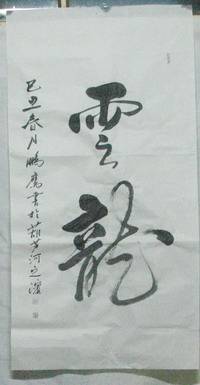 雲龍
己丑春月鵬鷹書於葫芦河之濱